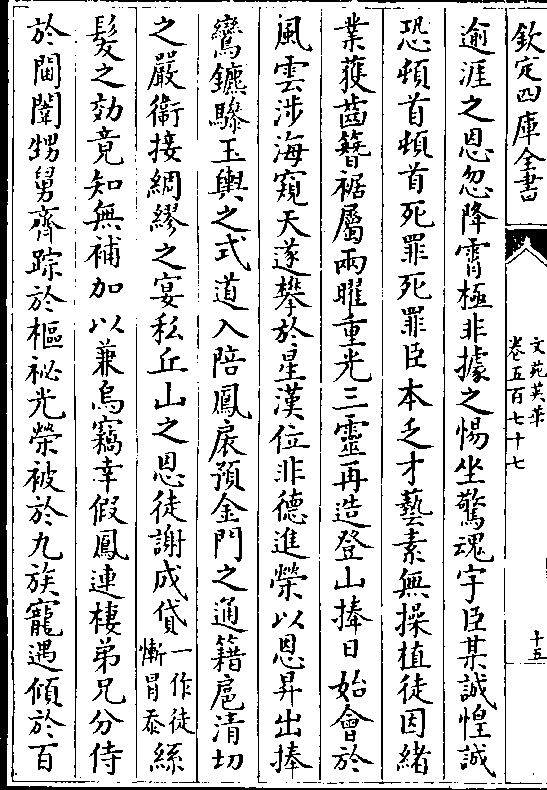 欽定四庫全書
文苑英華
卷五百七十七
十五
逾涯之恩忽降霄極非據之惕坐驚魂宇臣某誠惶誠
恐頓首頓首死罪死罪臣本乏才藝素無操植徒因緒
業獲齒簪裾屬兩曜重光三靈再造登山捧日始會於
風雲涉海窺天遂攀於星漢位非德進榮以恩昇出捧
鸞鑣驂玉輿之式道入陪鳳扆預金門之通籍扈清切
之嚴衛接綢繆之宴私丘山之恩徒謝成貸一作徒慚冒忝絲
髮之効竟知無補加以兼烏竊幸假鳳連棲弟兄分侍
於閫闈甥舅齊踪於樞祕光榮被於九族寵遇傾於百